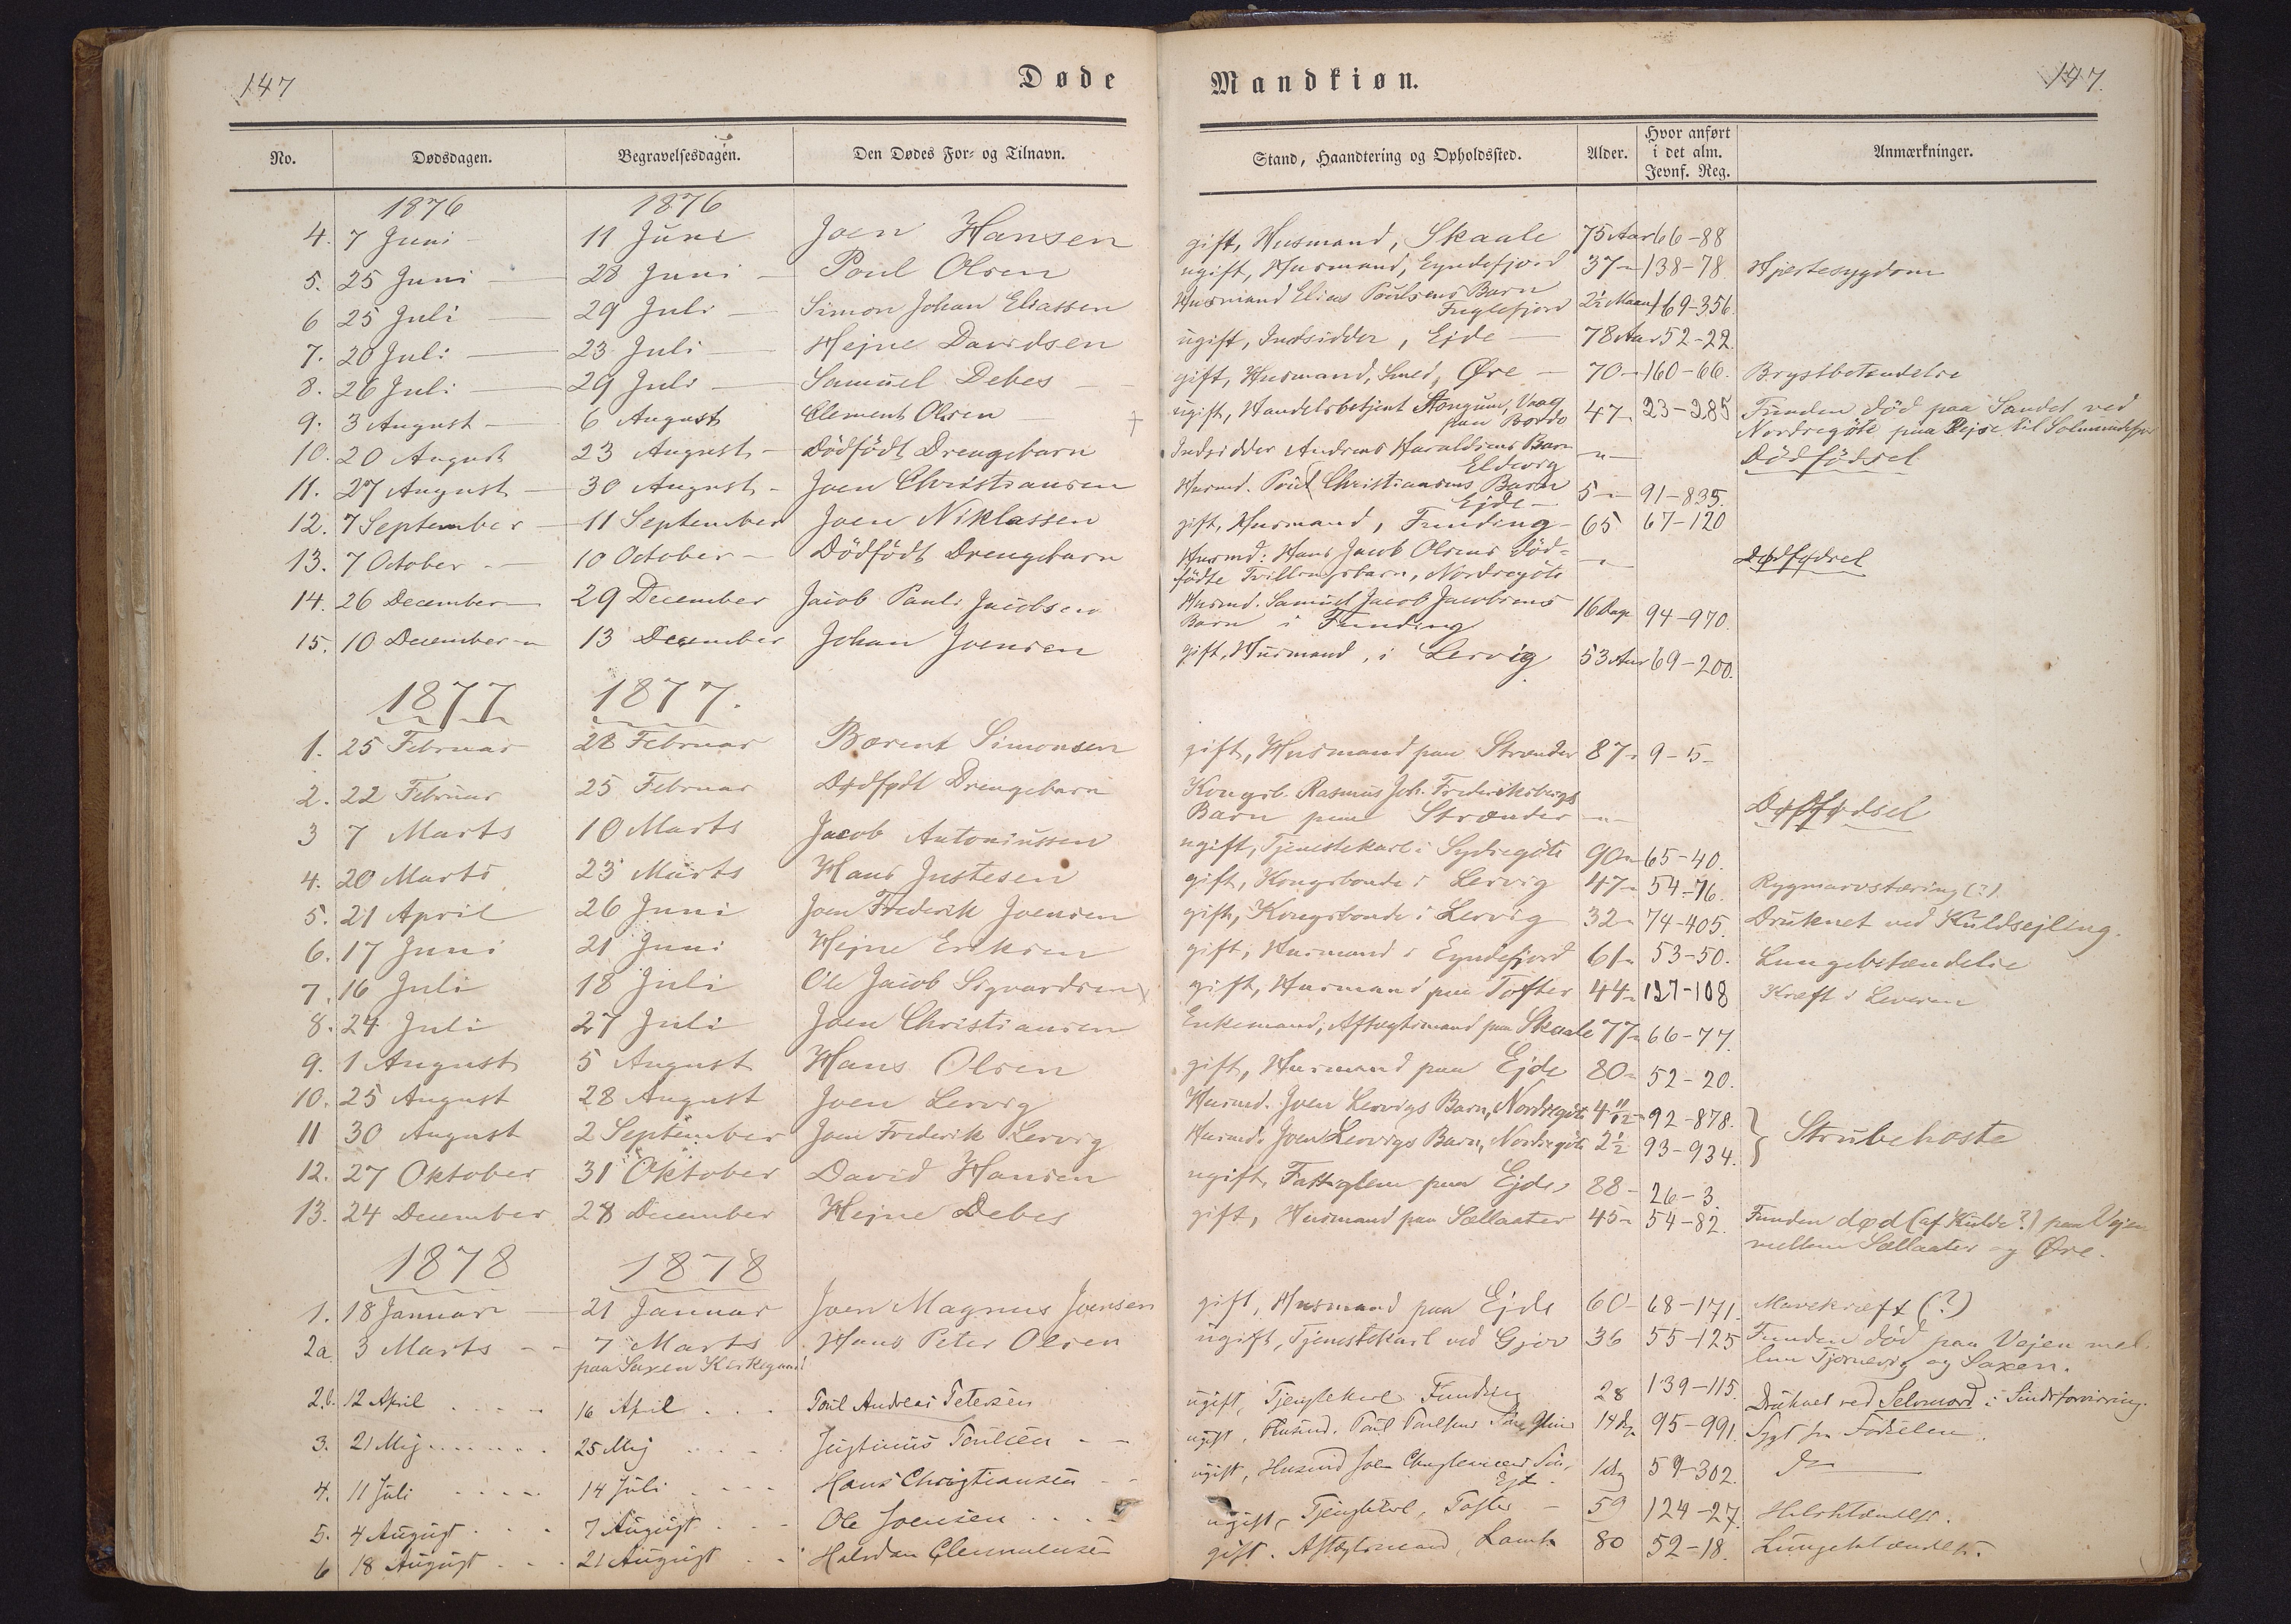 147 Døde Mandkiøn. 147.
No. Dødsdagen. Begravelsesdagen. Den Dødes For- og Tilnavn. Stand, Haandtering og Opholdssted. Alder. Hvor anført i det alm. Jevnf. Reg. Anmærkninger.
1876 1876
4. 7 Juni 11 Juni Joen Hansen gift, Husmand, Skaale 75 Aar 66-88
5. 25 Juni 28 Juni Poul Olsen ugift, Husmand, Eyndefjord 37 " 138-78 Hjertesygdom
6 25 Juli 29 Juli Simon Johan Eliassen Husmand Elias Poulsens Barn
Fuglefjord 2½ Maan 169-356.
7. 20 Juli 23 Juli Hejne Davidsen ugift, Indsidder, Ejde 78 Aar 52-22.
8. 26 Juli 29 Juli Samuel Debes gift, Husmand, Smed, Øre 70 160-66. Brystbetændelse
9. 3 August 6 August Clement Olsen ugift, Handelsbetjent Vaag
paa Bordø 47 23-285 Funden død paa Sandet ved
Nordregöte paa Rejse til
10. 20 August 23 August Dödfödt Drengebarn Indsidder Andreas Haraldsens Barn
Eldevig " Dödfödsel
11. 27 August 30 August Joen Christiansen Husmd. Poul Christiansens Barn
Ejde 5 " 91-835.
12. 7 September 11 September Joen Niklassen gift, Husmand, Funding 65 67-120
13. 7 October 10 October Dödfödt Drengebarn Husmd: Hans Jacob Olsens död-
födte Tvillingsbarn, Nordregöte " Dødfødsel
14. 26 December 29 December Jacob Pauli Jacobsen Husmd. Samuel Jacob Jacobsens
Barn i Funding 16 Dage 94-970.
15. 10 December 13 December Johan Joensen gift, Husmand, i Lervig 53 Aar 69-200.
1877 1877.
1. 25 Februar 28 Februar Barent Simonsen gift, Husmand paa Strænder 87 " 9-5-
2. 22 Februar 25 Februar Dødfødt Drengebarn Kongsb. Rasmus Joh. Frederiksbergs
Barn paa Strænder " Dødfødsel
3 7 Marts 10 Marts Jacob Antoniussen ugift, Tjenestekarl i Sydregöte 90 " 65-40.
4. 20 Marts 23 Marts Hans Justesen gift, Kongsbonde i Lervig 47 " 54-76. Rygmarvstæring (?)
5. 21 April 26 Juni Joen Frederik Joensen gift, Kongsbonde i Lervig 32 " 74-405. Druknet ved Kuldsejling.
6. 17 Juni 21 Juni Hejne Eriksen gift, Husmand i Eyndefjord 61 " 53-50. Lungebetændelse
7. 16 Juli 18 Juli Ole Jacob Sigvardsen gift, Husmand paa Tofter 44 " 127-108 Kræft i Leveren
8. 24 Juli 27 Juli Joen Christiansen Enkemand, Aftægtsmand paa Skaale 77 " 66-77.
9. 1 August 5 August Hans Olsen gift, Husmand paa Ejde 80 " 52-20.
10. 25 August 28 August Joen Lervig Husmd. Joen Lervigs Barn, Nordregöte 4 11/12 92-878. } Strubehoste
11 30 August 2 September Joen Frederik Lervig Husmd. Joen Lervigs Barn, Nordregöte 2½ 93-934.
12. 27 Oktober 31 Oktober David Hansen ugift, Fattiglem paa Ejde, 88 - 26-3.
13. 24 December 28 December Hejne Debes gift, Husmand paa Sællaater 45 " 54-82. Funden død (af Kulde?) paa Vejen
mellem Sællaater og Øre.
1878 1878
1. 18 Januar 21 Januar Joen Magnus Joensen gift, Husmand paa Ejde 60 - 68-171. Mavekræft (?)
2a. 3 Marts 7 Marts Hans Peter Olsen ugift, Tjenestekarl ved Gjov 36 55-125 Funden død paa Vejen mel-
paa Saxen Kirkegaard lem Tjørnevig og Saxen.
2b. 12 April 16 April Poul Andreas Petersen ugift, Tjenestekarl Funding 28 139-115. Druknet ved Selvmord i Sindsforvirring.
3. 21 Mej 25 Mej Justinus Poulsen ugift, Husmd. Poul Poulsens Søn 14 dg 95-991. Sygt fra Fødselen.
4. 11 Juli 14 Juli Hans Christiansen ugift, Husmd Joen Christiansens Søn,
Ejde 1 dg 59-302. Do
5. 4 August 7 August Ole Joensen ugift, Tjenestekarl, Tofter 59 124-27. Halsbetændelse.
6 18 August 21 August Halvdan Clementsen gift. Aftægtsmand, Lamba 80 52-18. Lungebetændelse.